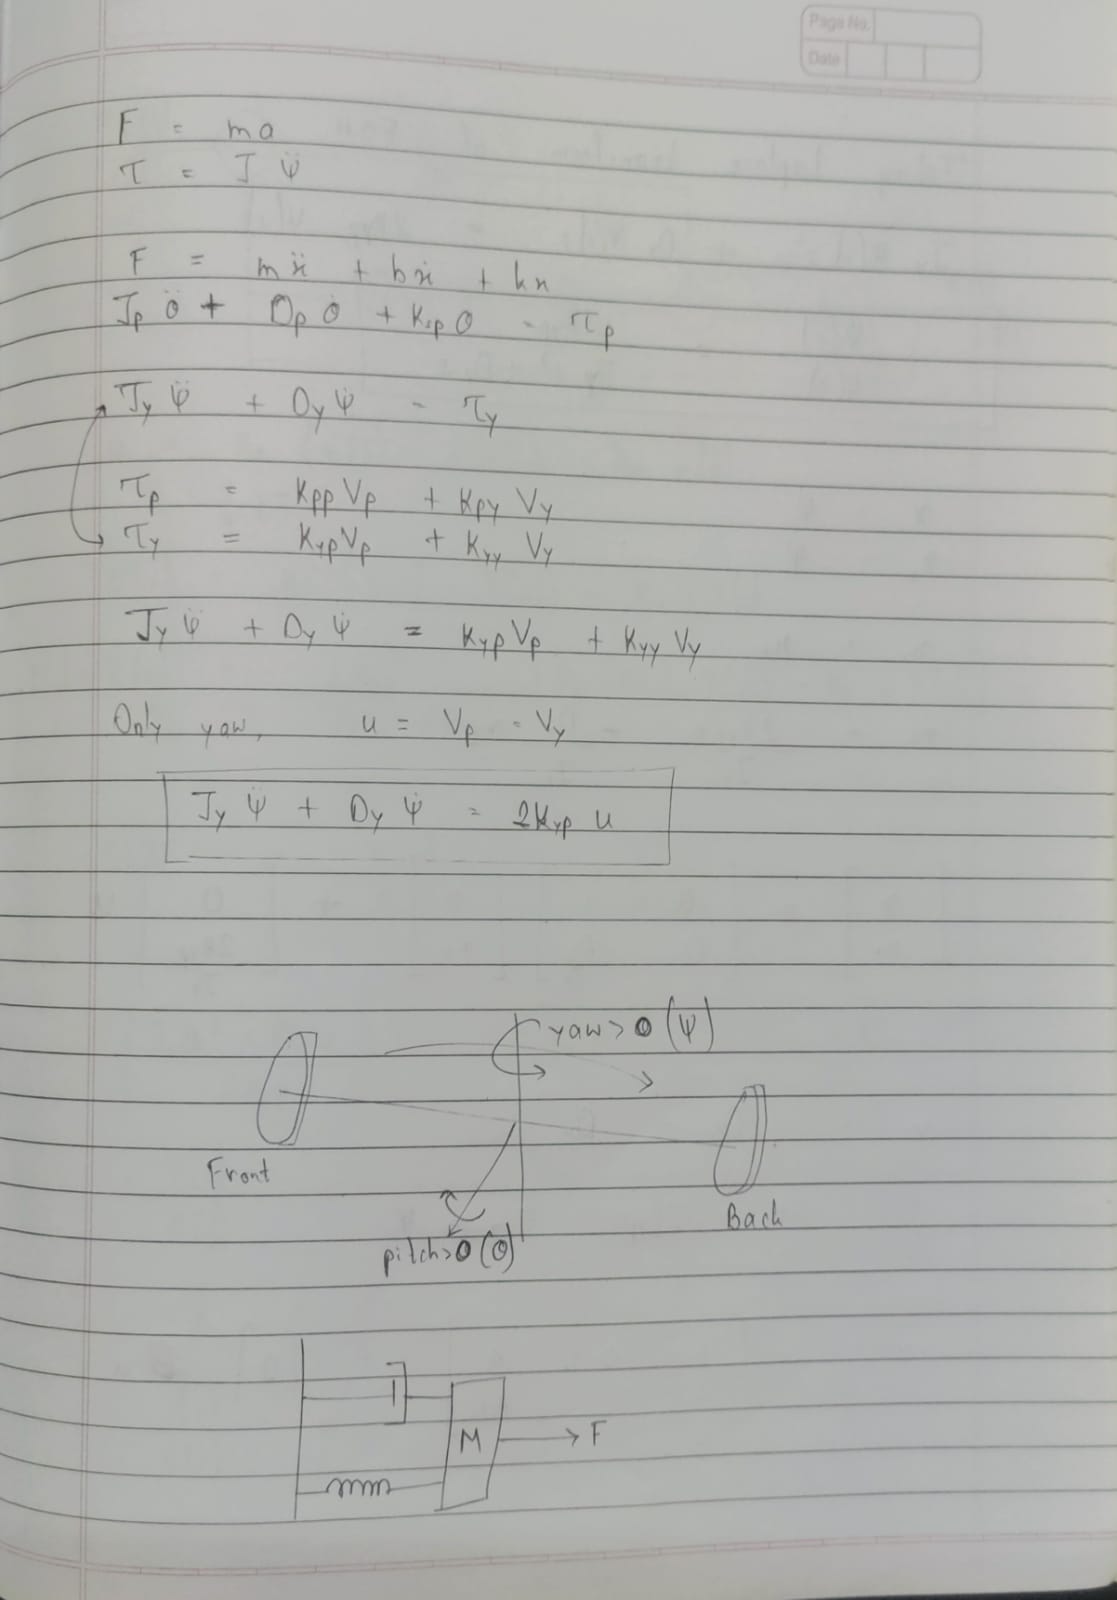 Page No.
Date
F = ma
τ = J ψ̈
F = mẍ + bẋ + kx
Jp θ̈ + Dp θ̇ + Ksp θ = τp
Jy ψ̈ + Dy ψ̇ = τy
τp = Kpp Vp + Kpy Vy
τy = Kyp Vp + Kyy Vy
Jy ψ̈ + Dy ψ̇ = Kyp Vp + Kyy Vy
Only yaw, u = Vp = Vy
Jy ψ̈ + Dy ψ̇ = 2Kyp u
yaw > 0 (ψ)
Front
Back
pitch > 0 (θ)
M → F